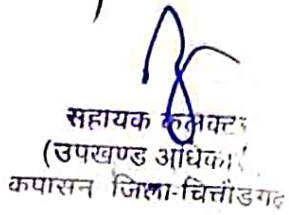 सहायक कलक्टर
(उपखण्ड अधिकारी
कपासन जिला-चित्तौडगढ